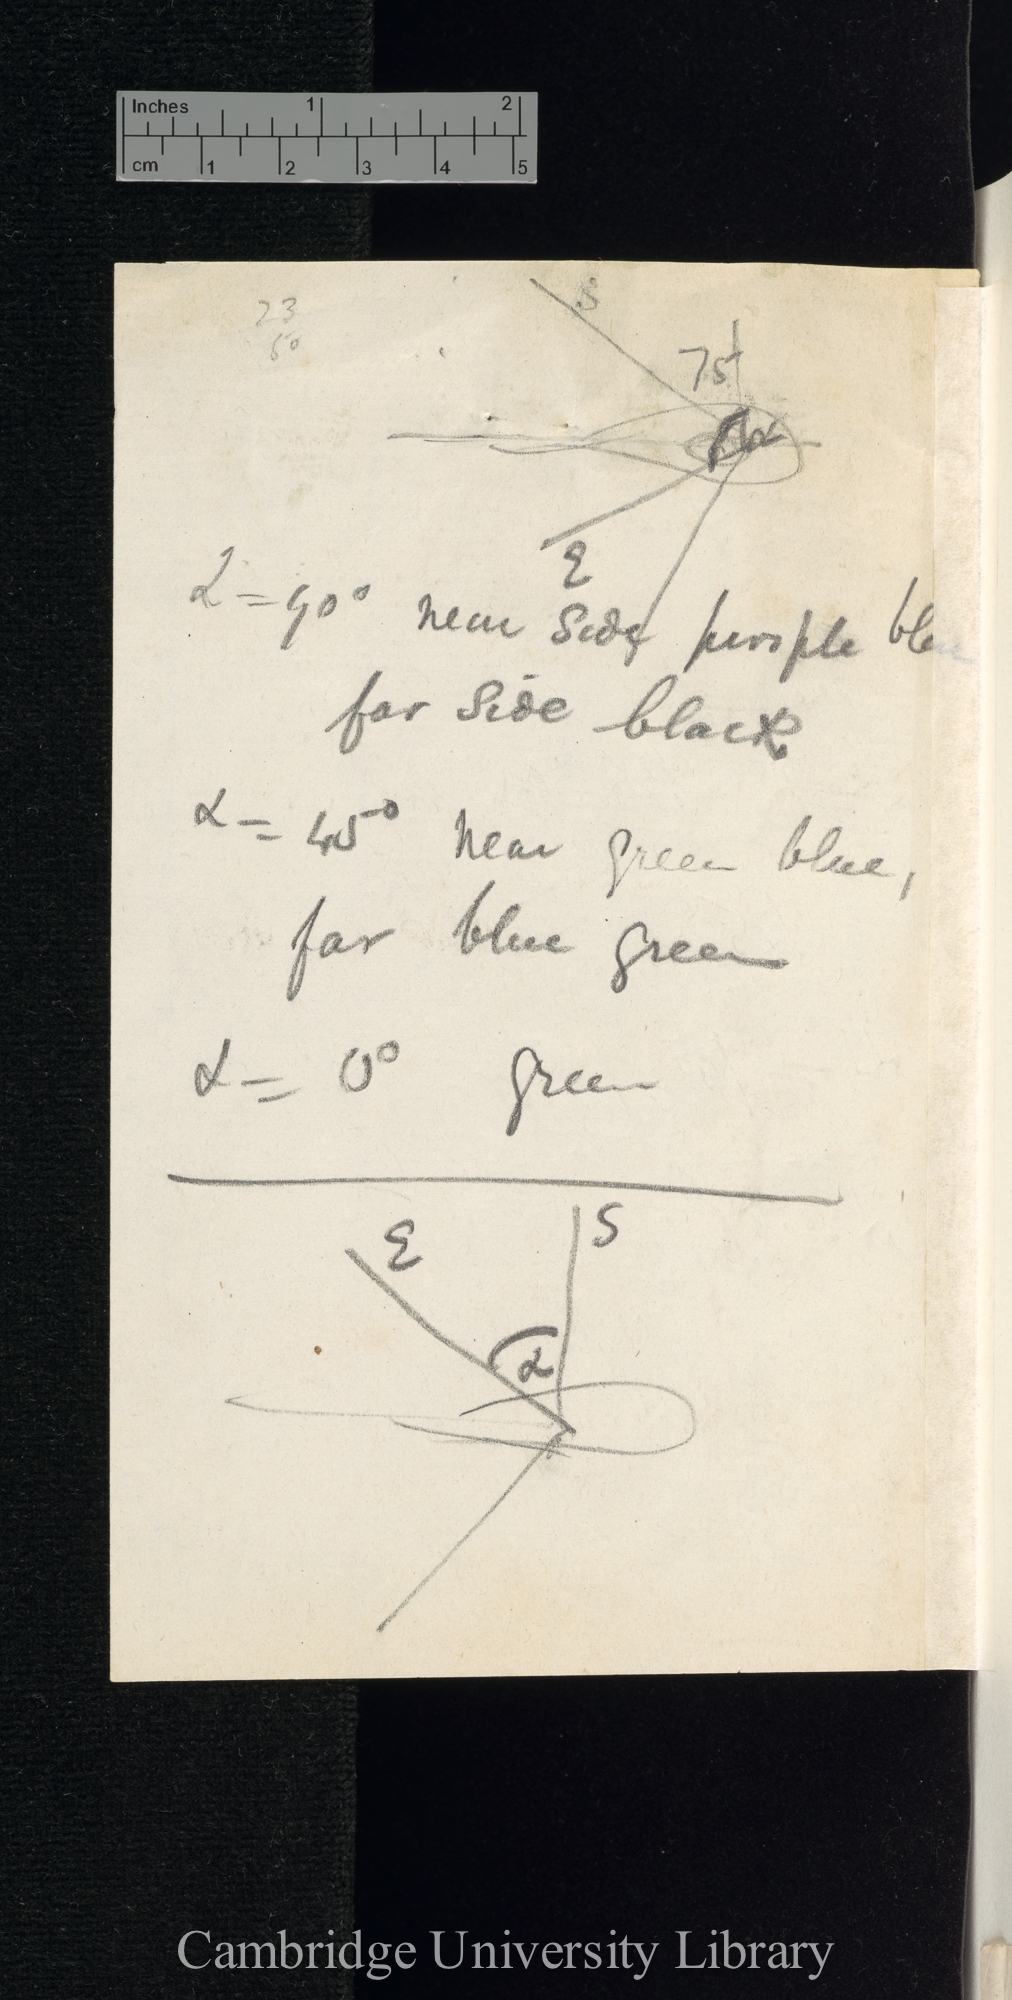 Inches 1 2
cm 1 2 3 4 5
23
60
S
75
α
E
α = 90° near side purple blue
far side black
α = 45° near green blue,
far blue green
α = 0° green
E S
α
Cambridge University Library